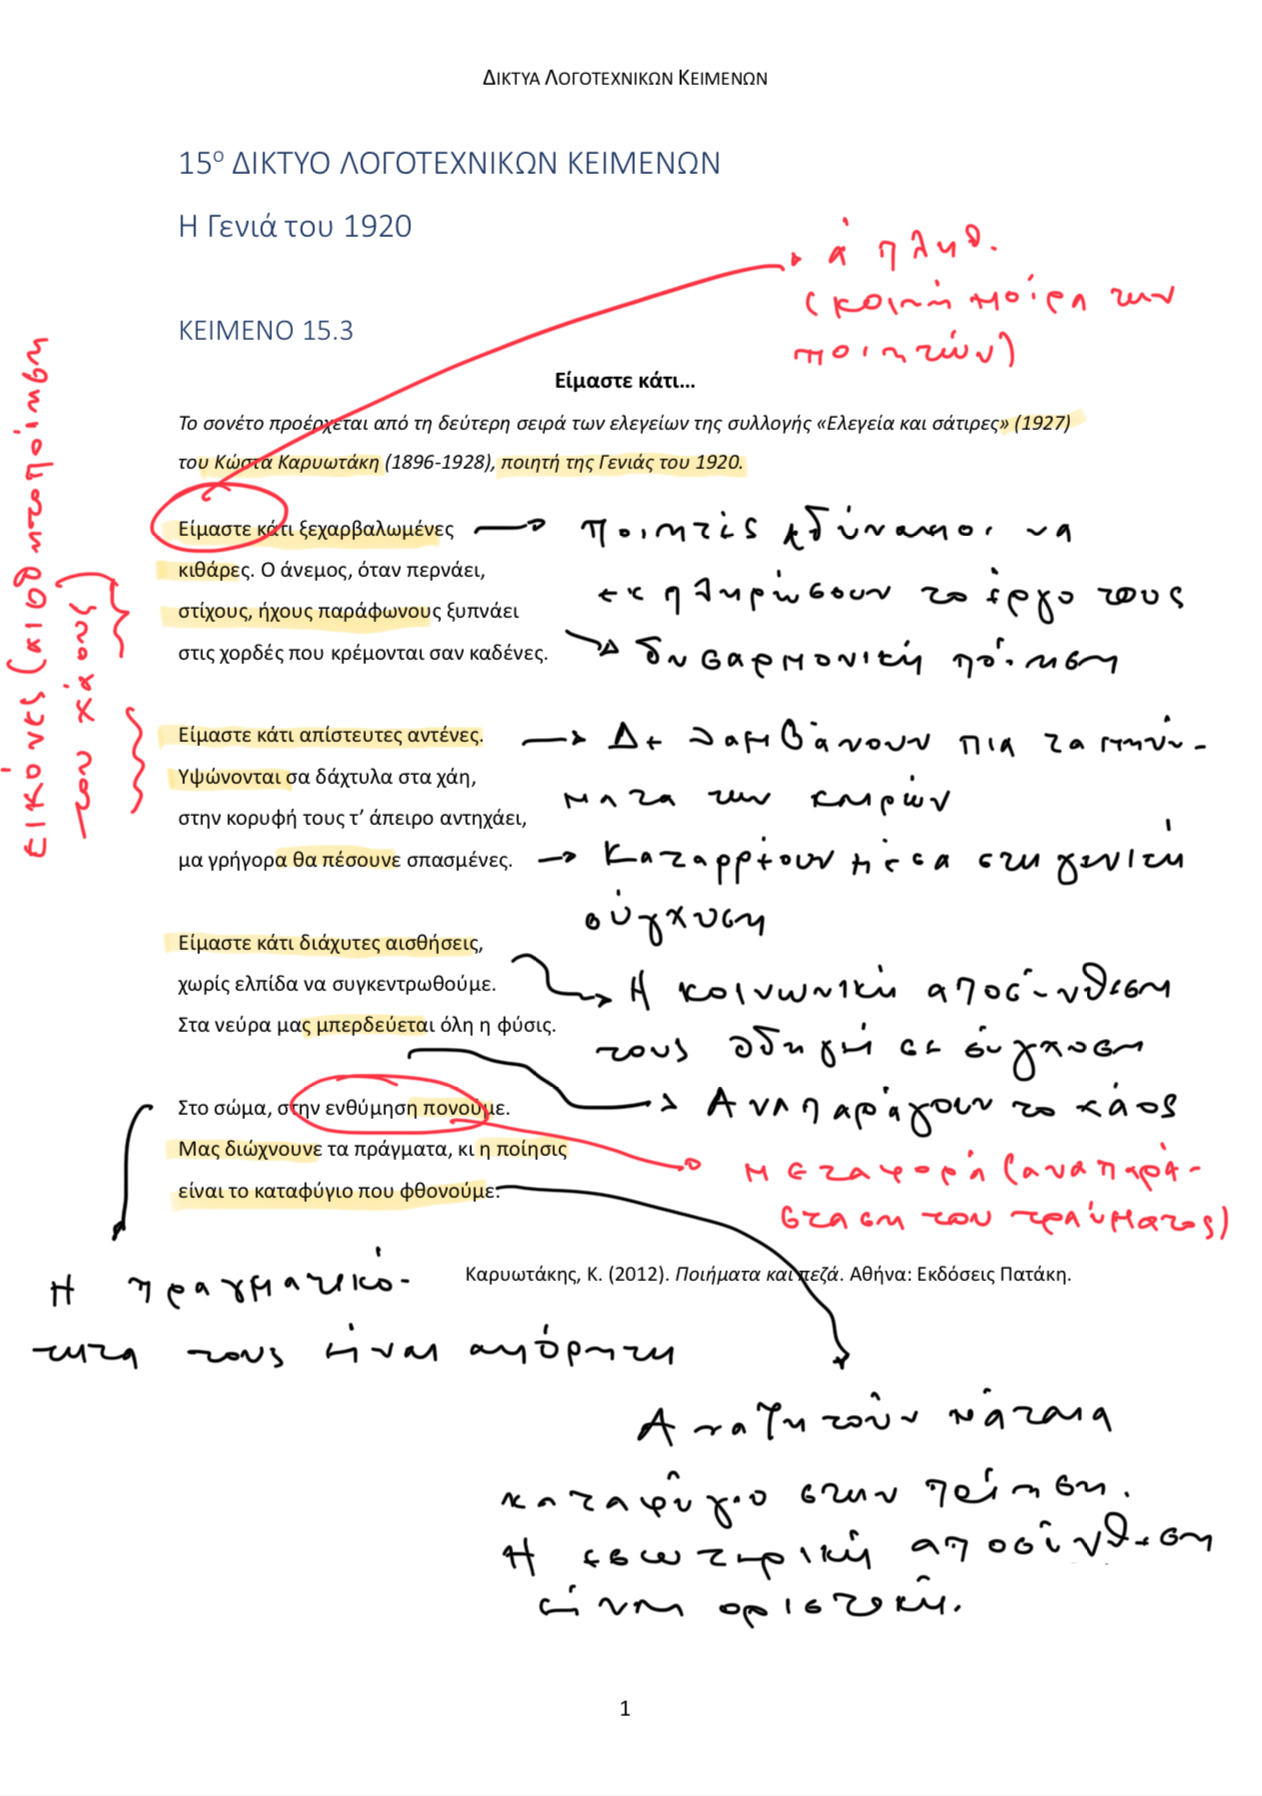 ΔΙΚΤΥΑ ΛΟΓΟΤΕΧΝΙΚΩΝ ΚΕΙΜΕΝΩΝ
15ο ΔΙΚΤΥΟ ΛΟΓΟΤΕΧΝΙΚΩΝ ΚΕΙΜΕΝΩΝ
Η Γενιά του 1920
ά πληθ.
(κοινή μοίρα των
ποιητών)
ΚΕΙΜΕΝΟ 15.3
Είμαστε κάτι...
Το σονέτο προέρχεται από τη δεύτερη σειρά των ελεγείων της συλλογής «Ελεγεία και σάτιρες» (1927)
του Κώστα Καρυωτάκη (1896-1928), ποιητή της Γενιάς του 1920.
εικόνες (αισθητοποίηση
του χάους)
Είμαστε κάτι ξεχαρβαλωμένες
ποιητές αδύναμοι να
κιθάρες. Ο άνεμος, όταν περνάει,
εκπληρώσουν το έργο τους
στίχους, ήχους παράφωνους ξυπνάει
στις χορδές που κρέμονται σαν καδένες.
δυσαρμονική ποίηση
Είμαστε κάτι απίστευτες αντένες.
Δε λαμβάνουν πια τα μηνύ-
Υψώνονται σα δάχτυλα στα χάη,
ματα των καιρών
στην κορυφή τους τ’ άπειρο αντηχάει,
μα γρήγορα θα πέσουνε σπασμένες.
Καταρρέουν μέσα στη γενική
σύγχυση
Είμαστε κάτι διάχυτες αισθήσεις,
χωρίς ελπίδα να συγκεντρωθούμε.
Η κοινωνική αποσύνθεση
Στα νεύρα μας μπερδεύεται όλη η φύσις.
τους οδηγεί σε σύγχυση
Στο σώμα, στην ενθύμηση πονούμε.
Αναπαράγουν το χάος
Μας διώχνουνε τα πράγματα, κι η ποίησις
μεταφορά (αναπαρά-
είναι το καταφύγιο που φθονούμε.
σταση του τραύματος)
Καρυωτάκης, Κ. (2012). Ποιήματα και πεζά. Αθήνα: Εκδόσεις Πατάκη.
Η πραγματικό-
τητα τους είναι αφόρητη
Αναζητούν μάταια
καταφύγιο στην ποίηση.
Η εσωτερική αποσύνθεση
είναι οριστική.
1